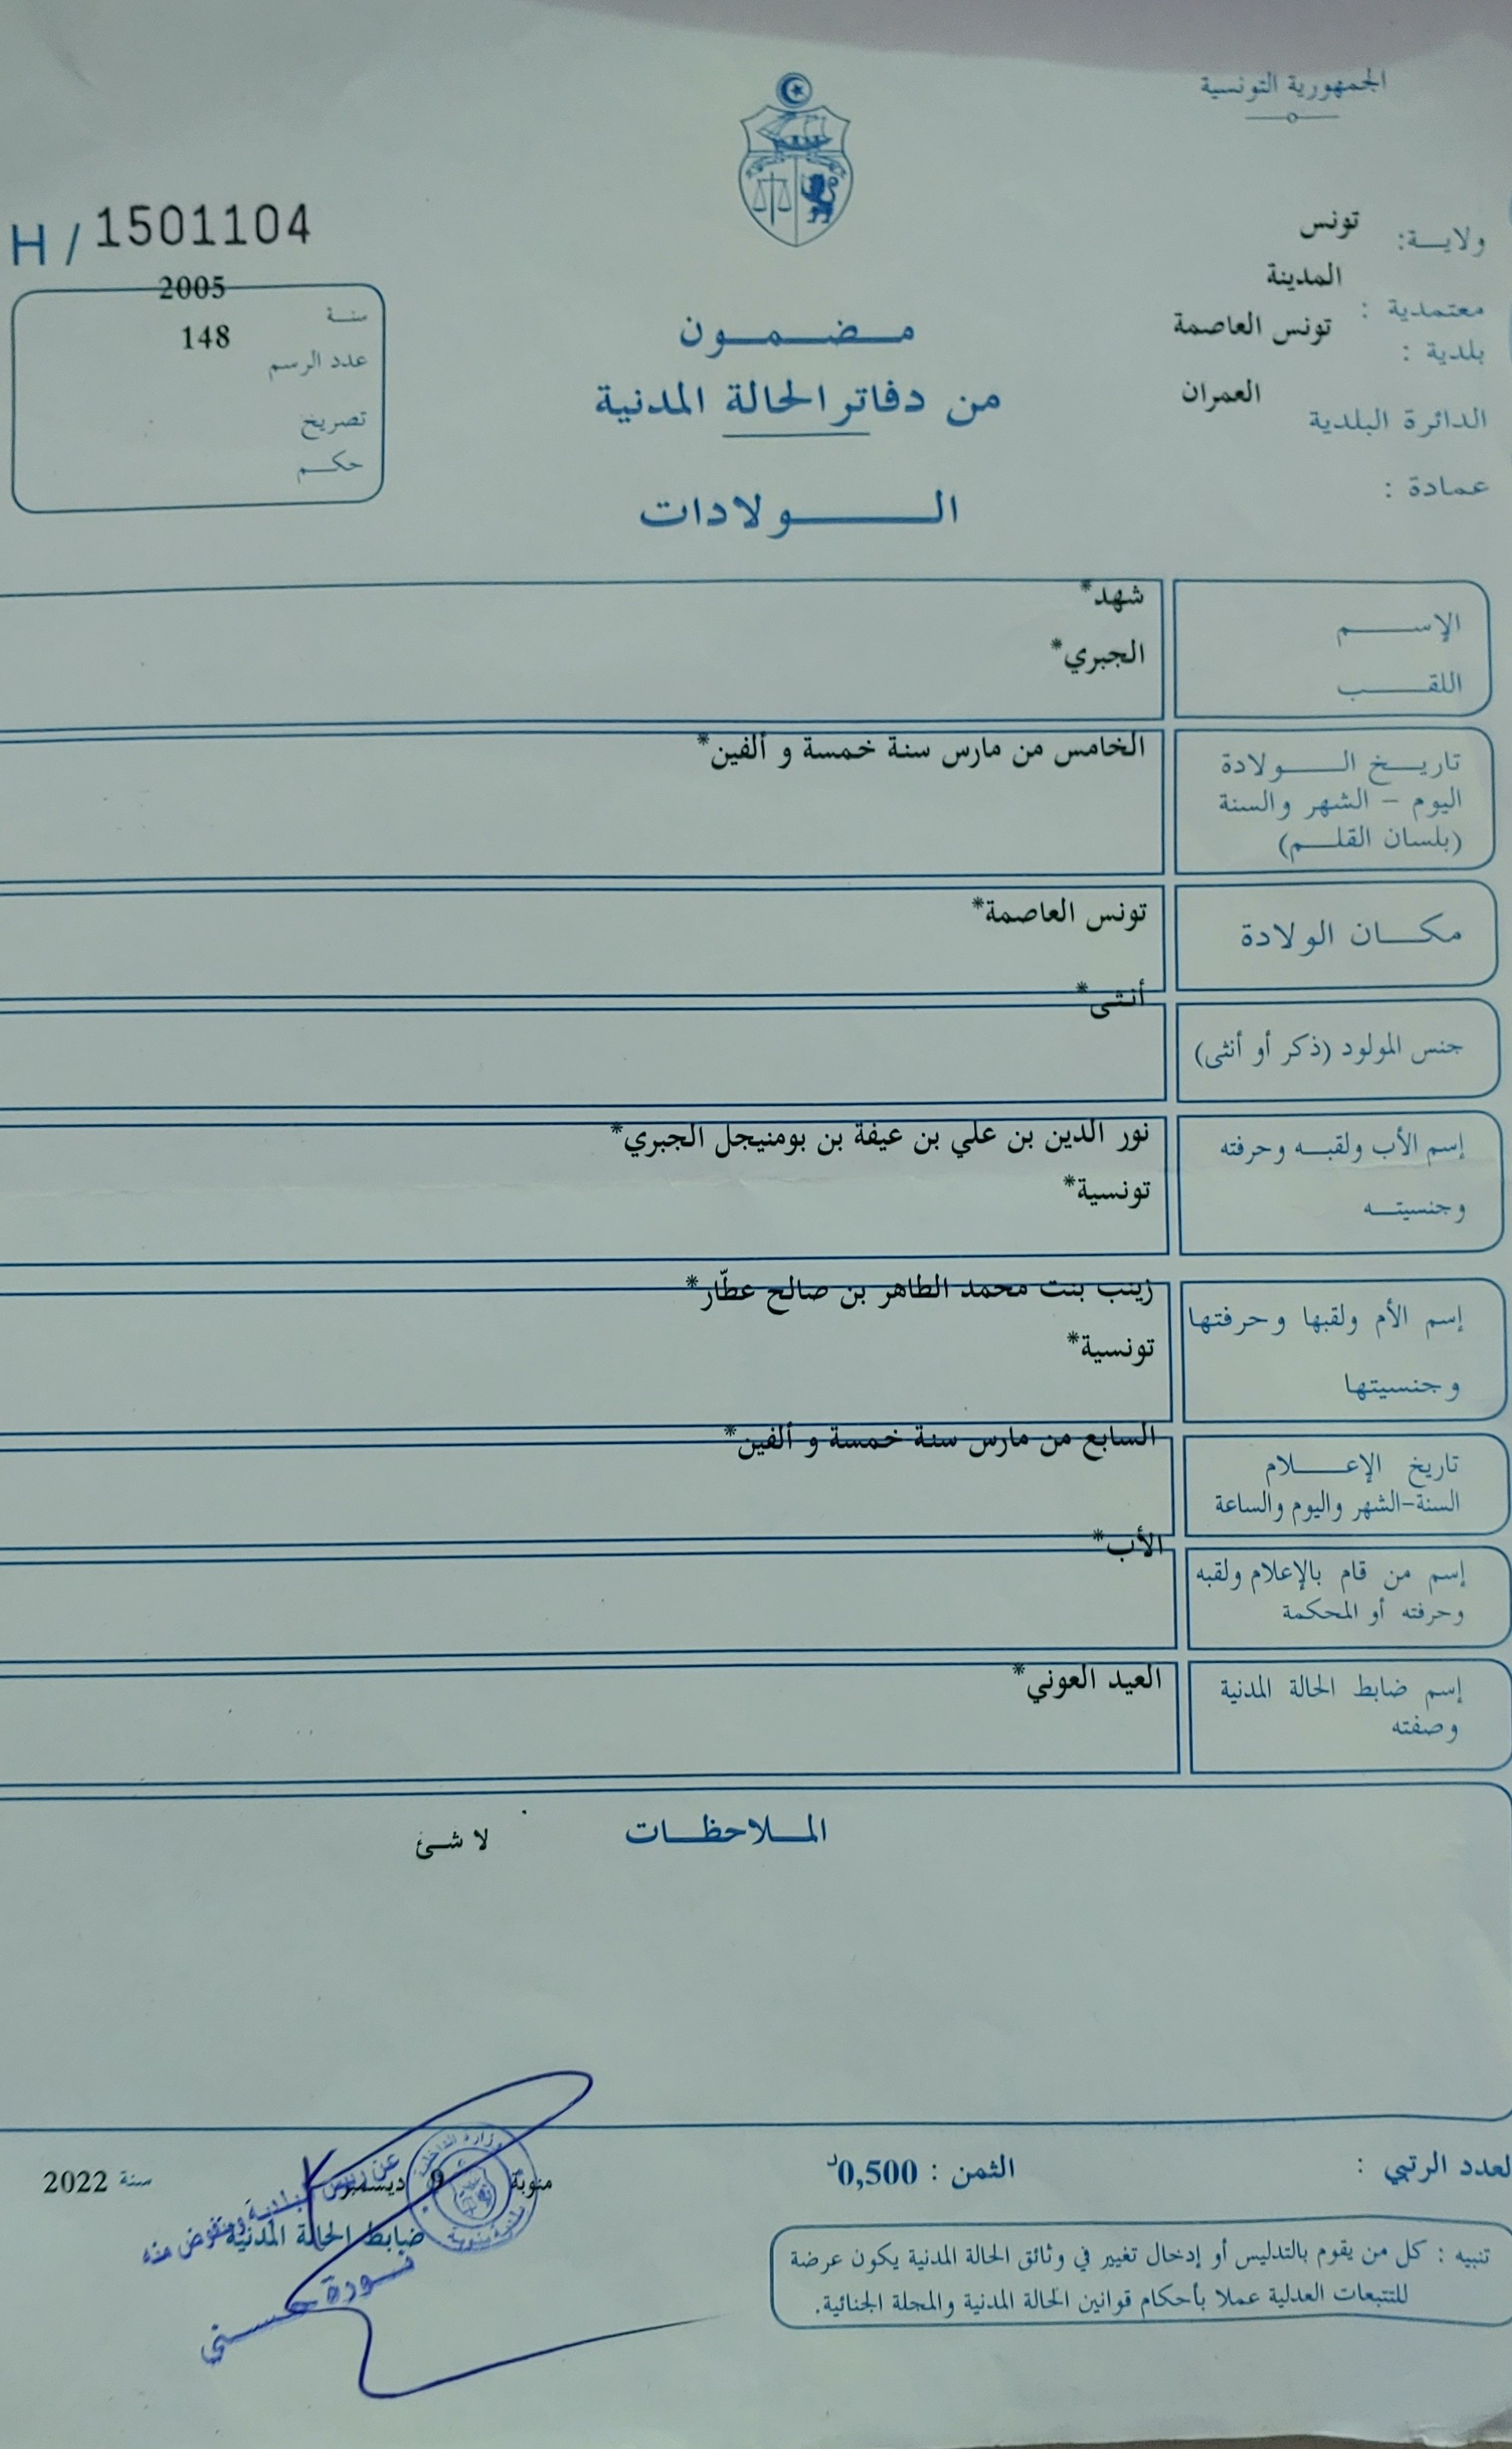 الجمهورية التونسية
H / 1501104
ولاية: تونس
معتمدية : المدينة
بلدية : تونس العاصمة
الدائرة البلدية العمران
عمادة :
سنة 2005
عدد الرسم 148
تصريح
حكم
مضمون
من دفاتر الحالة المدنية
الولادات
الإسم شهد*
اللقب الجبري*
تاريخ الولادة الخامس من مارس سنة خمسة و ألفين*
اليوم - الشهر والسنة
(بلسان القلم)
مكان الولادة تونس العاصمة*
جنس المولود (ذكر أو أنثى) أنثى*
إسم الأب ولقبه وحرفته نور الدين بن علي بن عيفة بن بومنيجل الجبري*
وجنسيته تونسية*
إسم الأم ولقبها وحرفتها زينب بنت محمد الطاهر بن صالح عطّار*
وجنسيتها تونسية*
تاريخ الإعلام السابع من مارس سنة خمسة و ألفين*
السنة-الشهر واليوم والساعة
إسم من قام بالإعلام ولقبه الأب*
وحرفته أو المحكمة
إسم ضابط الحالة المدنية العيد العوني*
وصفته
الملاحظات لا شئ
لعدد الرتبي :
الثمن : 0,500د
منوبة 9 ديسمبر سنة 2022
ضابط الحالة المدنية
عن رئيس البلدية وبتفويض منه
وزارة الداخلية
تنبيه : كل من يقوم بالتدليس أو إدخال تغيير في وثائق الحالة المدنية يكون عرضة
للتتبعات العدلية عملا بأحكام قوانين الحالة المدنية والمجلة الجنائية.